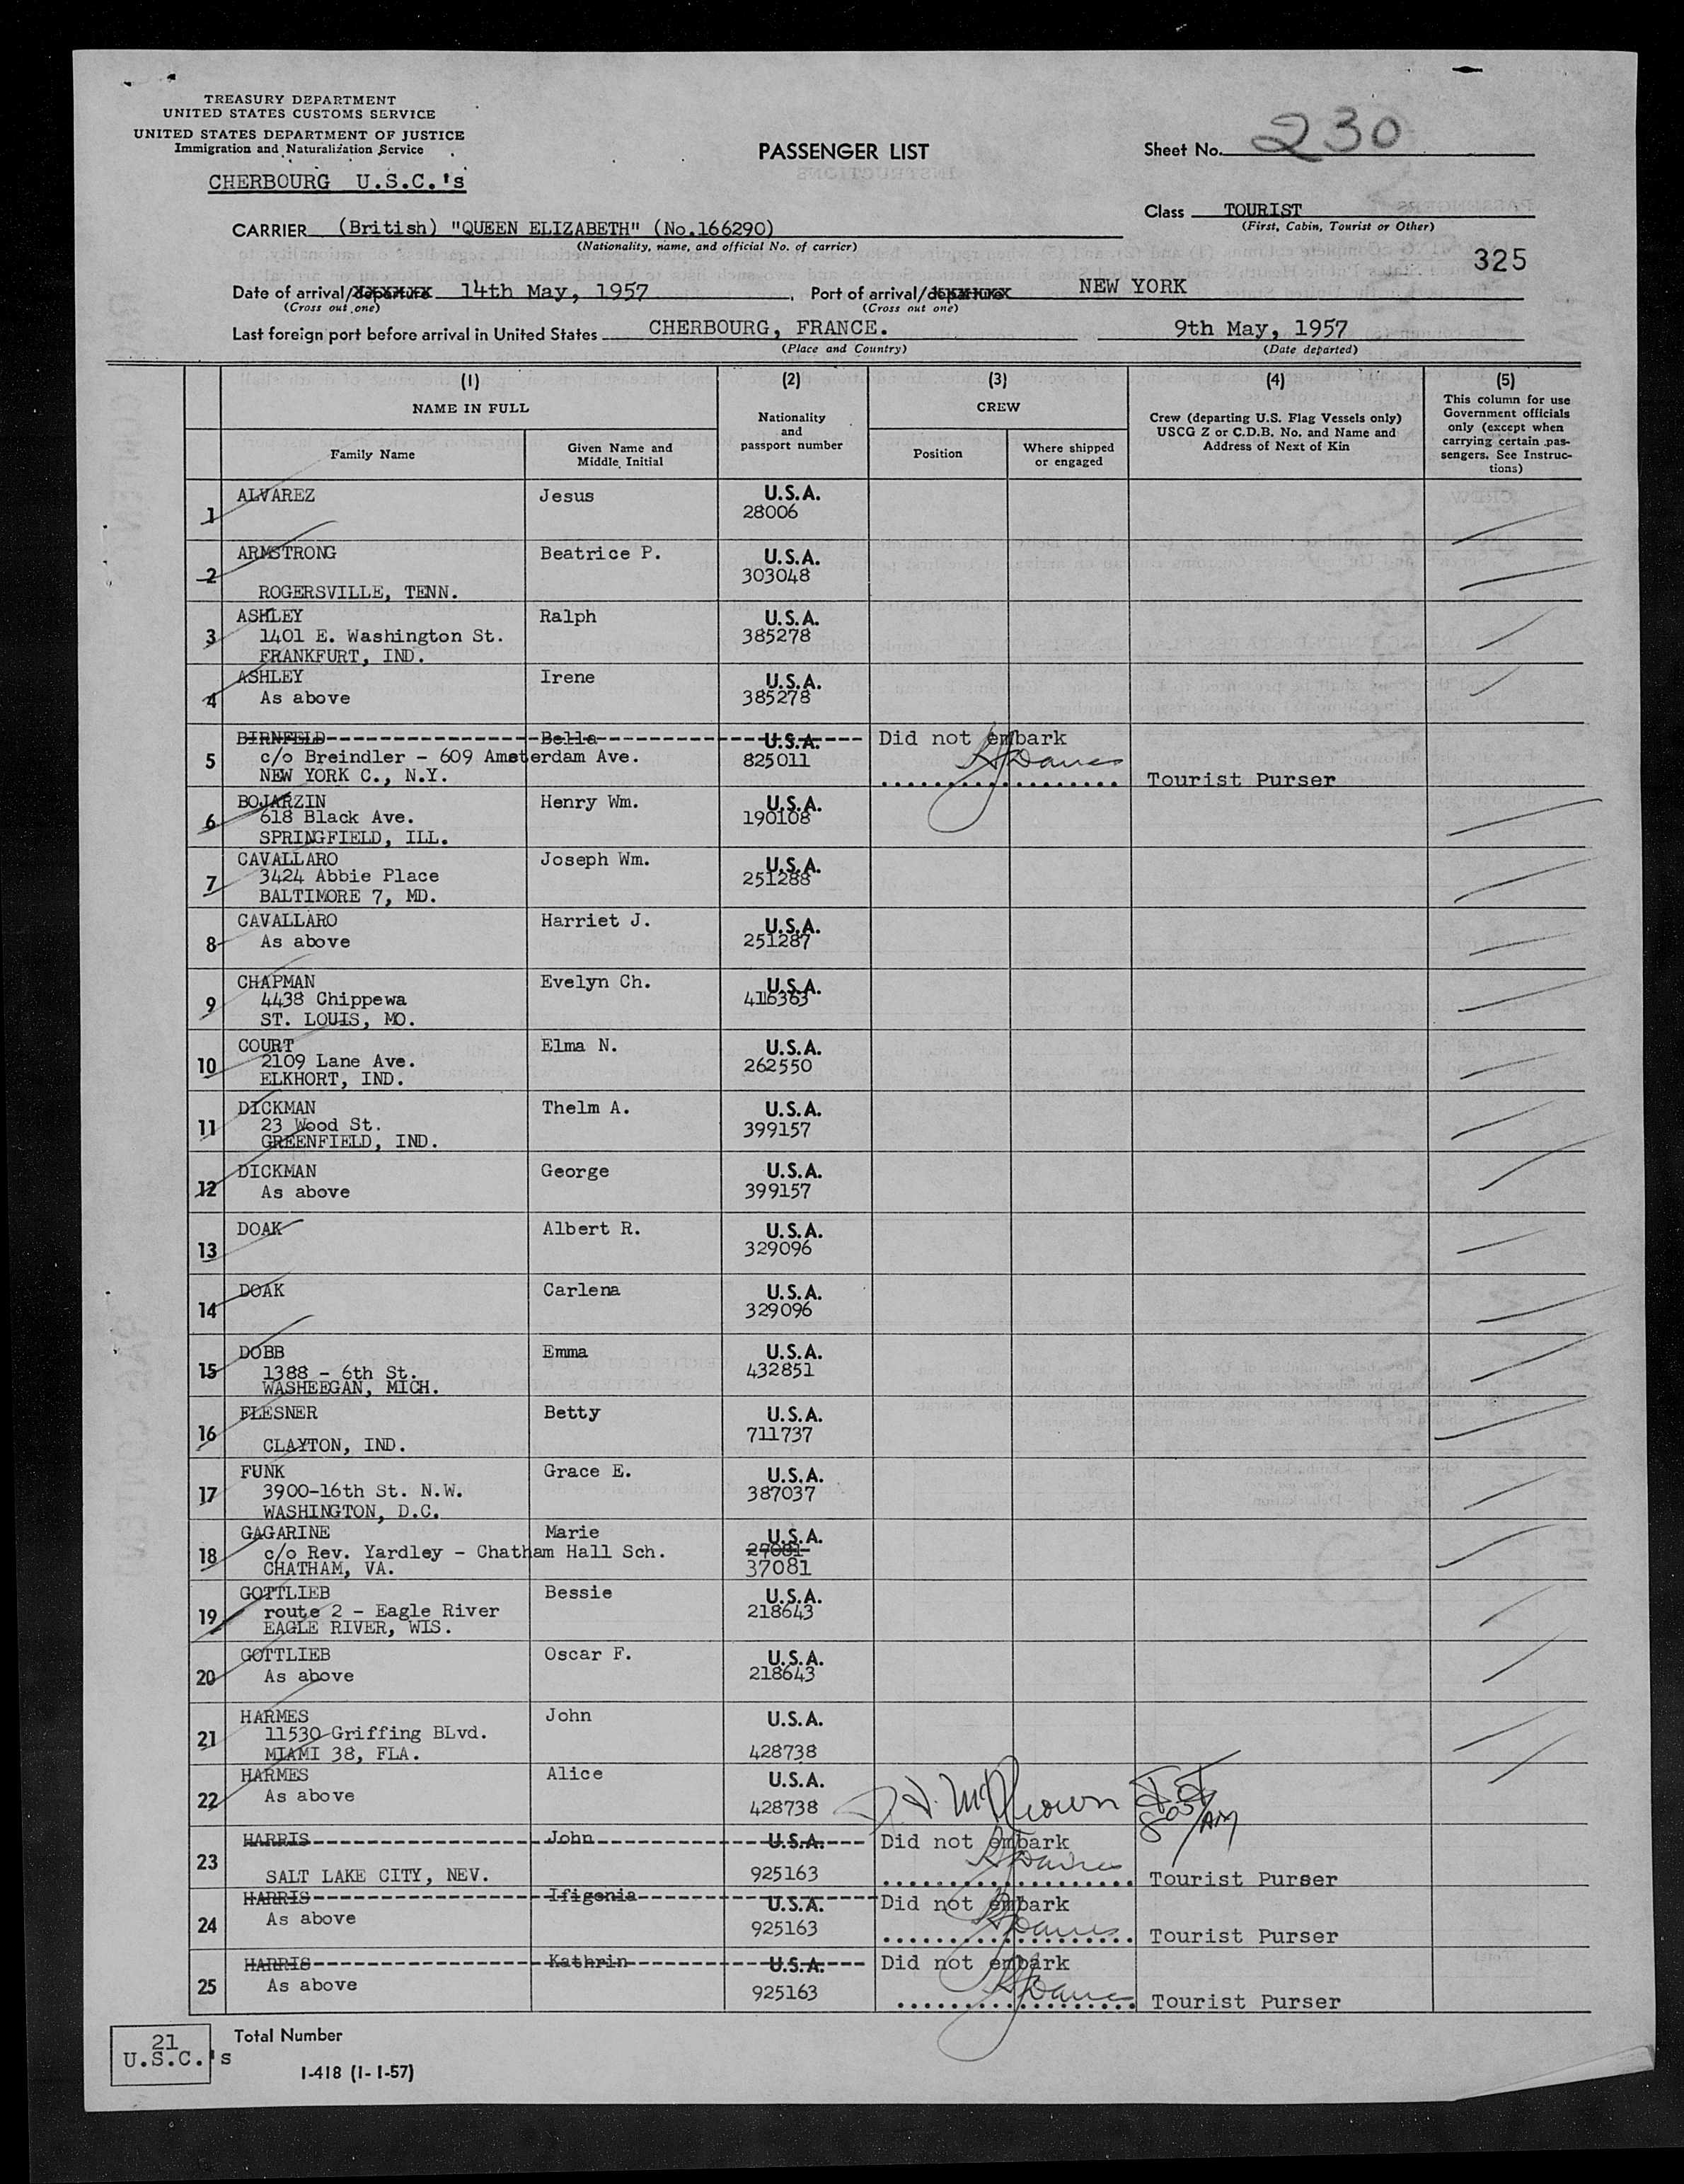 TREASURY DEPARTMENT
UNITED STATES CUSTOMS SERVICE
UNITED STATES DEPARTMENT OF JUSTICE
Immigration and Naturalization Service
CHERBOURG U.S.C.'s
PASSENGER LIST
Sheet No. 230
Class TOURIST
(First, Cabin, Tourist or Other)
CARRIER (British) "QUEEN ELIZABETH" (No.166290)
(Nationality, name, and official No. of carrier)
325
Date of arrival/departure 14th May, 1957. Port of arrival/departure NEW YORK
(Cross out one) (Cross out one)
Last foreign port before arrival in United States CHERBOURG, FRANCE. 9th May, 1957
(Place and Country) (Date departed)
(1) (2) (3) (4) (5)
NAME IN FULL
Family Name
Given Name and Middle Initial
Nationality and passport number
CREW
Position
Where shipped or engaged
Crew (departing U.S. Flag Vessels only)
USCG Z or C.D.B. No. and Name and
Address of Next of Kin
This column for use
Government officials
only (except when
carrying certain pas-
sengers. See Instruc-
tions)
1 ALVAREZ Jesus U.S.A.
28006
2 ARMSTRONG Beatrice P. U.S.A.
303048
ROGERSVILLE, TENN.
3 ASHLEY Ralph U.S.A.
1401 E. Washington St. 385278
FRANKFURT, IND.
4 ASHLEY Irene U.S.A.
As above 385278
5 BIRNFELD Bella U.S.A. Did not embark
c/o Breindler - 609 Amsterdam Ave. 825011
NEW YORK C., N.Y. Tourist Purser
6 BOJARZIN Henry Wm. U.S.A.
618 Black Ave. 190108
SPRINGFIELD, ILL.
7 CAVALLARO Joseph Wm. U.S.A.
3424 Abbie Place 251288
BALTIMORE 7, MD.
8 CAVALLARO Harriet J. U.S.A.
As above 251287
9 CHAPMAN Evelyn Ch. U.S.A.
4438 Chippewa 416363
ST. LOUIS, MO.
10 COURT Elma N. U.S.A.
2109 Lane Ave. 262550
ELKHORT, IND.
11 DICKMAN Thelm A. U.S.A.
23 Wood St. 399157
GREENFIELD, IND.
12 DICKMAN George U.S.A.
As above 399157
13 DOAK Albert R. U.S.A.
329096
14 DOAK Carlena U.S.A.
329096
15 DOBB Emma U.S.A.
1388 - 6th St. 432851
WASHEEGAN, MICH.
16 FLESNER Betty U.S.A.
711737
CLAYTON, IND.
17 FUNK Grace E. U.S.A.
3900-16th St. N.W. 387037
WASHINGTON, D.C.
18 GAGARINE Marie U.S.A.
c/o Rev. Yardley - Chatham Hall Sch. 27081
CHATHAM, VA. 37081
19 GOTTLIEB Bessie U.S.A.
route 2 - Eagle River 218643
EAGLE RIVER, WIS.
20 GOTTLIEB Oscar F. U.S.A.
As above 218643
21 HARMES John U.S.A.
11530 Griffing BLvd.
MIAMI 38, FLA. 428738
22 HARMES Alice U.S.A.
As above 428738
805/AM
23 HARRIS John U.S.A. Did not embark
SALT LAKE CITY, NEV. 925163 Tourist Purser
24 HARRIS Ifigenia U.S.A. Did not embark
As above 925163 Tourist Purser
25 HARRIS Kathrin U.S.A. Did not embark
As above 925163 Tourist Purser
21 U.S.C.'s Total Number
I-418 (1-1-57)